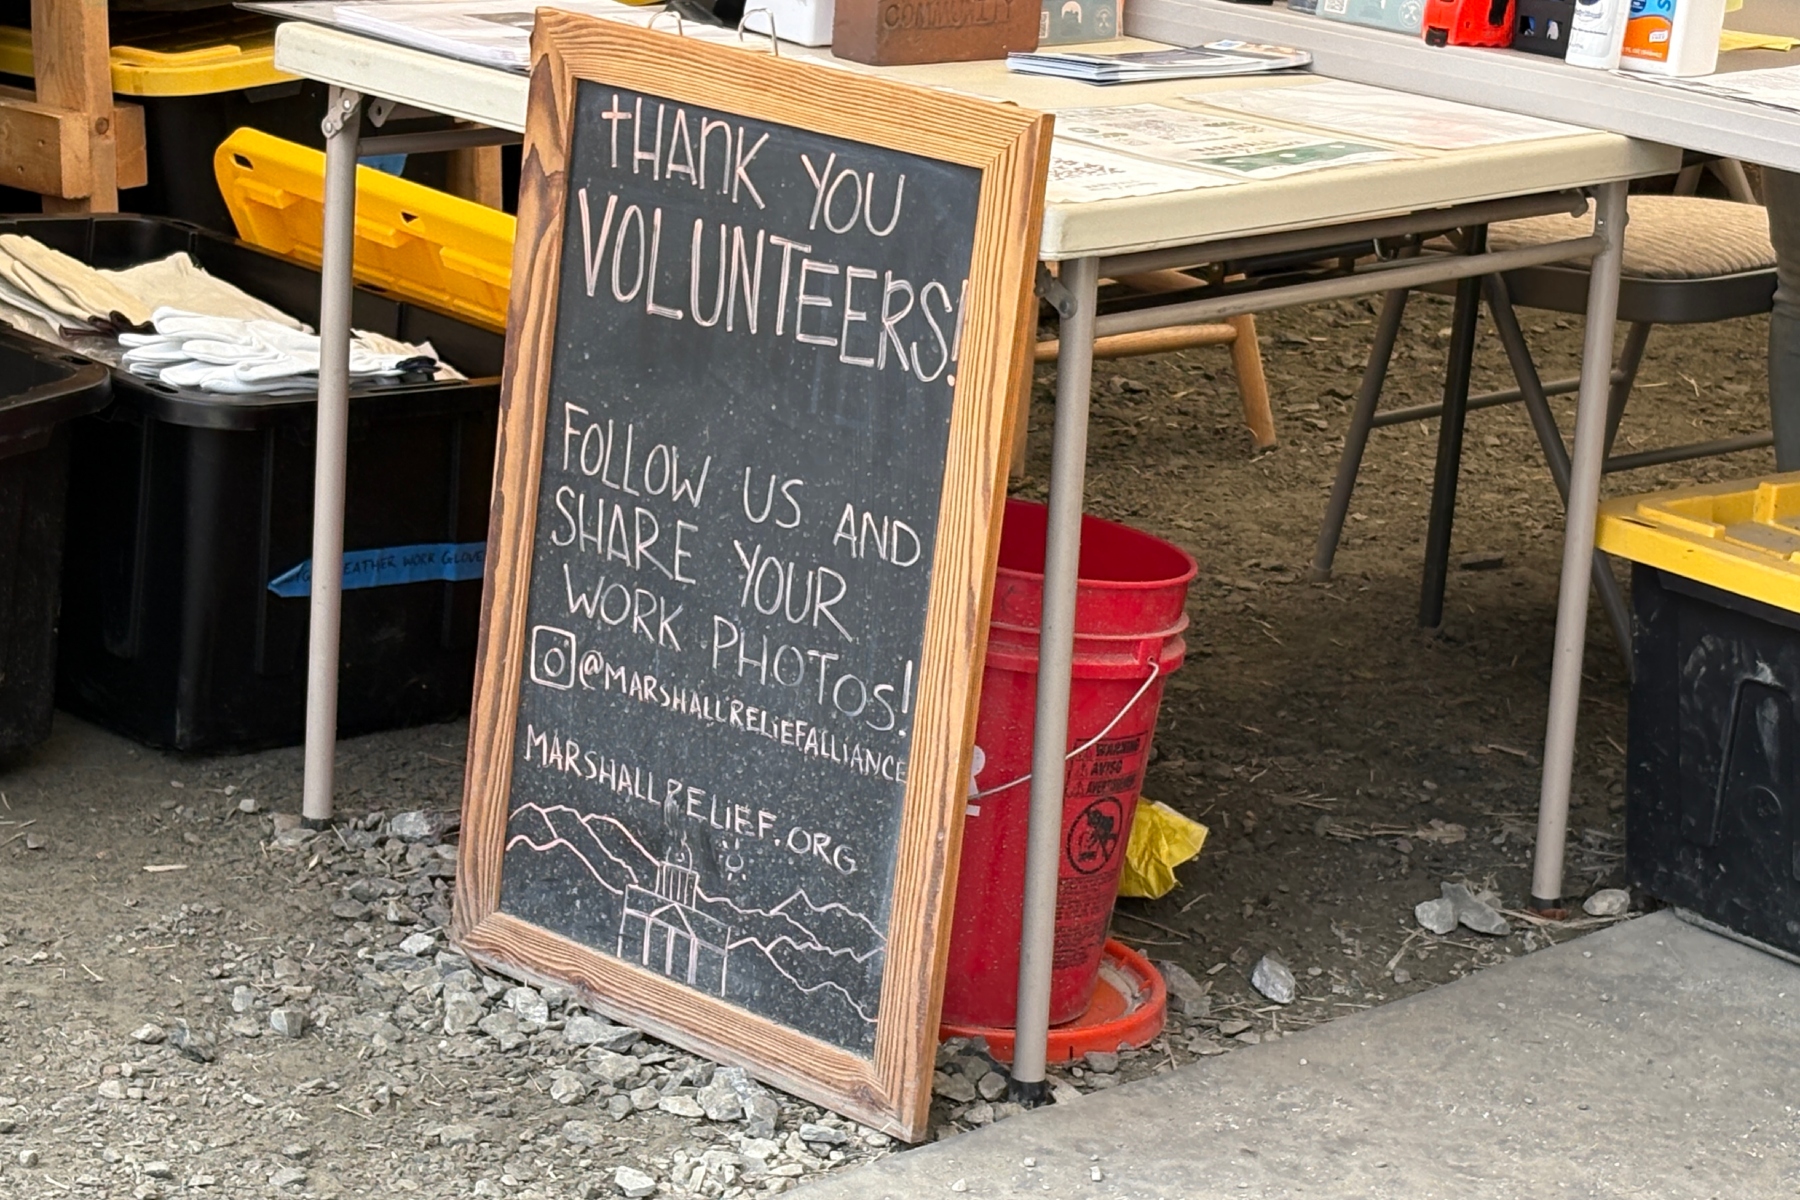 COMMUNITY
tHANK YOU
VOLUNTEERS!
FOLLOW US AND
SHARE YOUR
WORK PHOTOS!
@MARSHALLRELiEFALLiANCE
MARSHALLRELiEF.ORG
LEATHER WORK GLOVE
WARNING
AVISO